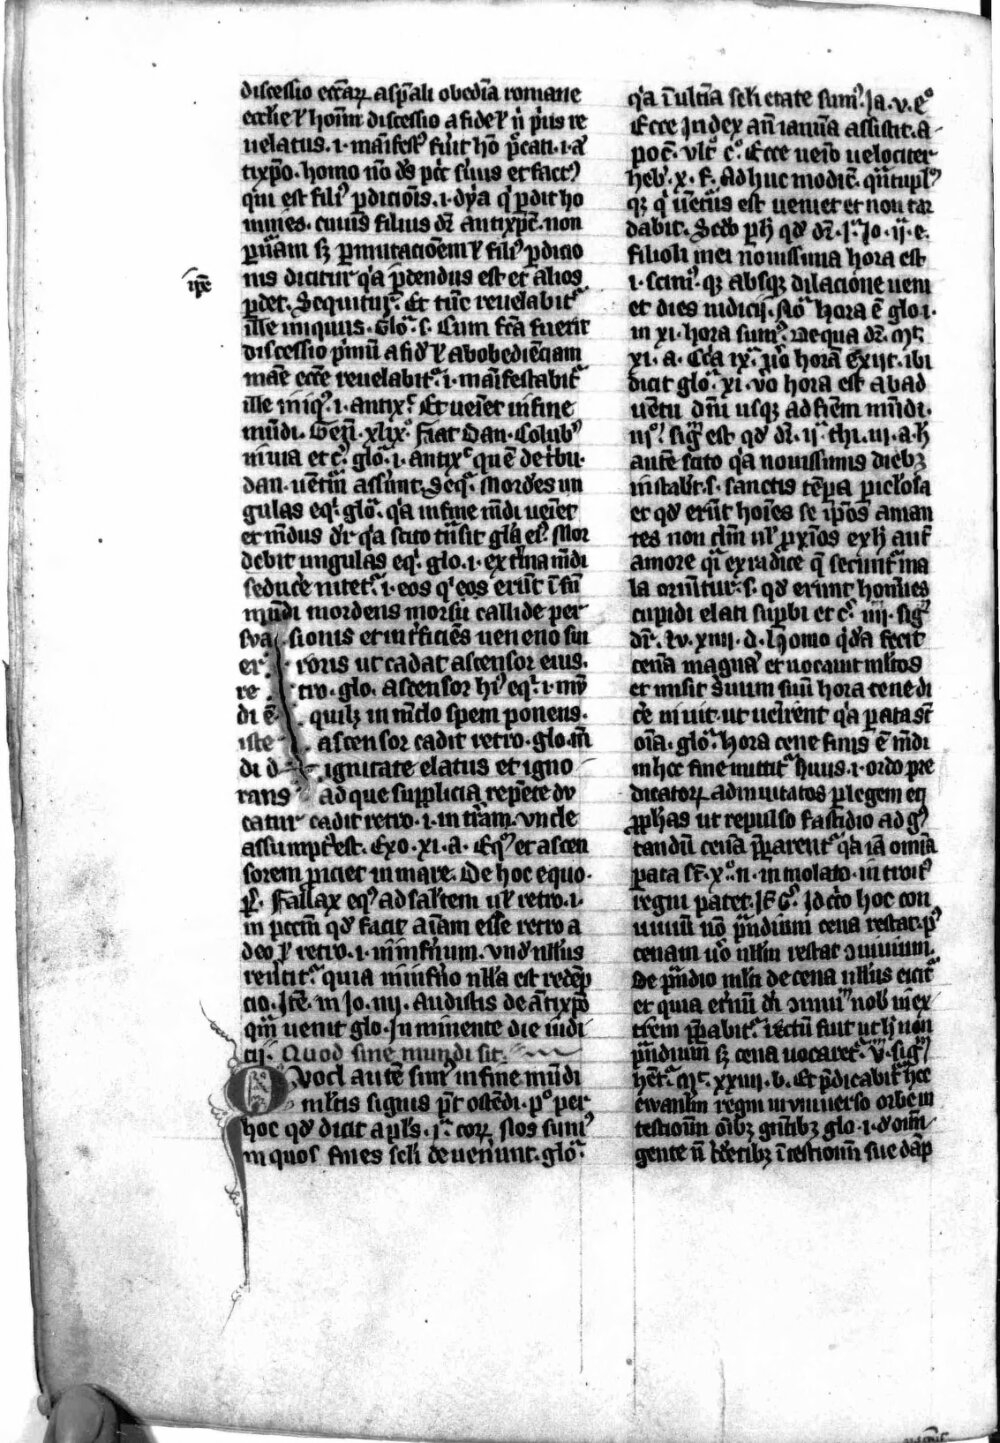 discessio eccãꝝ a sp̃ali obediã romane
eccłie ł hoĩm discessio a fide ł nĩ p̾us re
uelatus .i. mãifest᷒ fũit hõ p̃cati .i. ã
tixp̃o. homo nõ dꝰ pct̃ suus et fact᷒
qui est fili᷒ ꝑdiciõis .i. dyã q̾ ꝑdit ho
mines. cuius filius dr̃ antixp̃c̃. non
ꝑ nãm sꝫ ꝑ mutaciõem ł fili᷒ ꝑdicio
nis dicitur q̾a p̃dendus est et alios
ꝑdet. Sequitur. Et tũc reuelabit᷑
ip̃e
ille iniquus. Glo᷑. s. Cum fc̃a fuerit
discessio p̾mũ a fid᷑ ł ab obediẽciam
mãe ecc̃e reuelabit᷑ .i. mãifestabit᷑
ille iniq᷒ .i. antix᷑ Et ueiet in fine
mũdi. Geñ. xlix᷎ Fiat Dan. Colub᷑
in uia et c᷎. glo᷑ .i. antix᷑ qui ẽ de tbu.
dan. uẽtur᷑ asserũt. Seq᷑. Mordẽs un
gulas eq̾. glo᷑. q̾a in fine mũdi ueiet
et mũdus dr̃ q̾a scito trãsit glã ei᷒. Mor
debit ungulas eq̾. glo. i. extrema mũdi
seducẽ nitet᷑ .i. eos q̾ eos erũt ĩ fin
mũdi mordens morsu callide per
sua sionis et int̾ficiẽs ueneno sui
er roris ut cadat ascensor eius.
re tro. glo. ascensor hi᷒ eq̾ .i. mũ
di ẽ quilꝫ in mũdo spem ponens.
iste ascensor cadit retro. glo. mũ
di d ignitate elatus et igno
rans ad que supplicia repẽte du
catur cadit retro .i. in t̾ram. unde
assumpt᷑ est. Exo. xi. a. Eq᷒ et ascen
sorem p̾ciet in mare. De hoc equo.
p᷎s. Fallax eq᷒ ad salutem uł retro .i.
in pcc̃m qđ facit aĩam esse retro a
deo ł retro .i. in infernum. vnđ nllius
reuertit᷑ quia in inferno nlla est redẽp
cio. Itẽ. in Jo. iiij. Audistis de ãtixp̃o
qm̃ uenit glo. Inminente die iudi
cij. Quod fine mundi sit.
Quod autẽ sim᷒ in fine mũdi
mltis signis pt̃ ostẽdi. p᷎ per
hoc qđ dicit apłs. j᷑. corꝝ Nos sum᷒
in quos fines seculi deuenerunt. glo᷑
q̾a ĩ ultĩa seculi etate sum᷒. Ja. v. c᷎
Ecce Judex añ ianuã assistit. A
poc̃. vlt̃ c᷎. Ecce uenio uelociter
heb᷑. x. f. Adhuc modic̃. q̃ntulũ
qꝫ q̾ uẽt᷑us est ueniet et non tar
dabit. Scđo ꝑ h᷑ qđ dr̃. j᷑. Jo. ij. e.
filioli mei nouissima hora est
.i. scim᷒ qꝫ absqꝫ dilacione ueni
et dies iudicij. Nõ hora ẽ glo .i.
in xi. hora sum᷒. De qua dr̃. mt᷑.
xi. a. Circa ix᷑ u᷎o horã exijt. ibi
dicit glo᷑. xi. u᷎o hora est ab ad
uẽtu dñi usqꝫ ad finem mũdi.
iij᷎. sig᷑ est qđ dr̃. ij᷑ thi. iij. a. h᷑
autẽ scito q̾a nouissimis diebꝫ
instabũt. s. sanctis tẽpa piclosa
et qđ erũt hoĩes se ip̃os aman
tes non dm̃ uł pxĩos ex h᷑ aut̃
amore q̃i ex radice q̃ secunt᷑ ma
la oriũtur. s. qđ erunt homĩes
cupidi elati supbi et c᷎. iiij. sig᷑
dr̃. lu. xiiij. d. Homo q̾da fecit
cenã magnã et uocauit mltos
et misit suum suũ hora cene di
ce inuit. ut uenirent q̾a parata st̃
oĩa. glo᷑. hora cene finis ẽ mũdi
in hoc fine mittit᷑ huus .i. ordo pre
dicatorꝝ ad inuitatos ꝑ legem eq
ꝓphas ut repulso fastidio ad g᷑
tandũ cenã p̃parent᷑ q̾a iã omia
parata st̃. x᷎. n. inmolato. introit᷒
regni patet. It̃ G᷑. Id circo hoc con
uiuiũ nõ prãndium cena restat. p᷒
cenam uõ nllm restat ɔuiuium.
De prandio mlti de cena nllus eicit᷑
et quia eternũ dĩ ɔuiui᷑ nob̃ in ex
trem p̃pabit᷑. rectũ fuit ut h᷑ non
p̃ndium sꝫ cena uocaret᷑. v᷑. sig᷑
het᷑. mt᷑. xxiiij. b. Et p̃dicabit᷑ hoc
ewanlm̃ regni in vniuerso orbe in
testiom̃ oĩbꝫ gentibꝫ glo .i. đ oim᷑
gente ñ credetibꝫ ĩ testiom̃ sue dãp